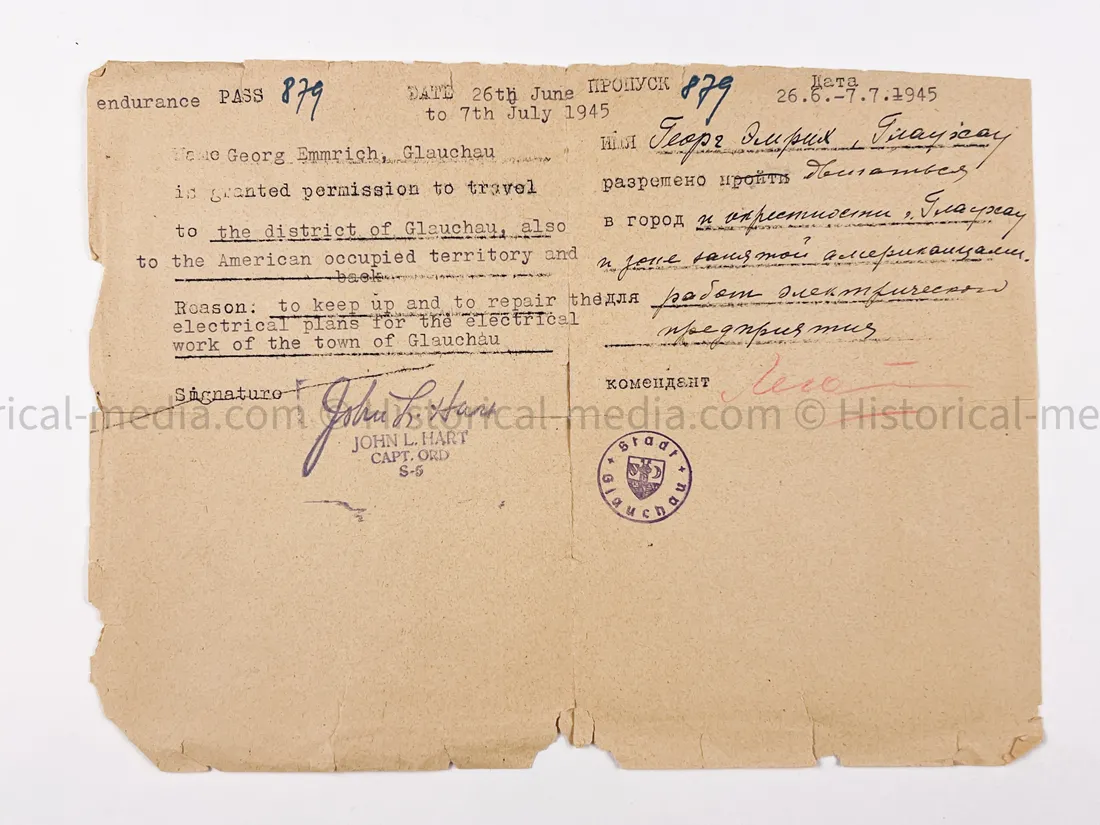 endurance PASS 879 DATE 26th June
to 7th July 1945
Name Georg Emmrich, Glauchau
is granted permission to travel
to the district of Glauchau, also
to the American occupied territory and
back
Reason: to keep up and to repair the
electrical plans for the electrical
work of the town of Glauchau
Smignature
John L. Hart
JOHN L. HART
CAPT. ORD
S-5
ПРОПУСК 879 Дата
26.6.-7.7.1945
ИМЯ Георг Эмрих, Глаухау
разрешено пройти двигаться
в город и окрестности г. Глаухау
и зоне занятой американцами.
для работ электрического
предприятия
комендант
Stadt Glauchau
Historical-media.com © Historical-media.com © Historical-me